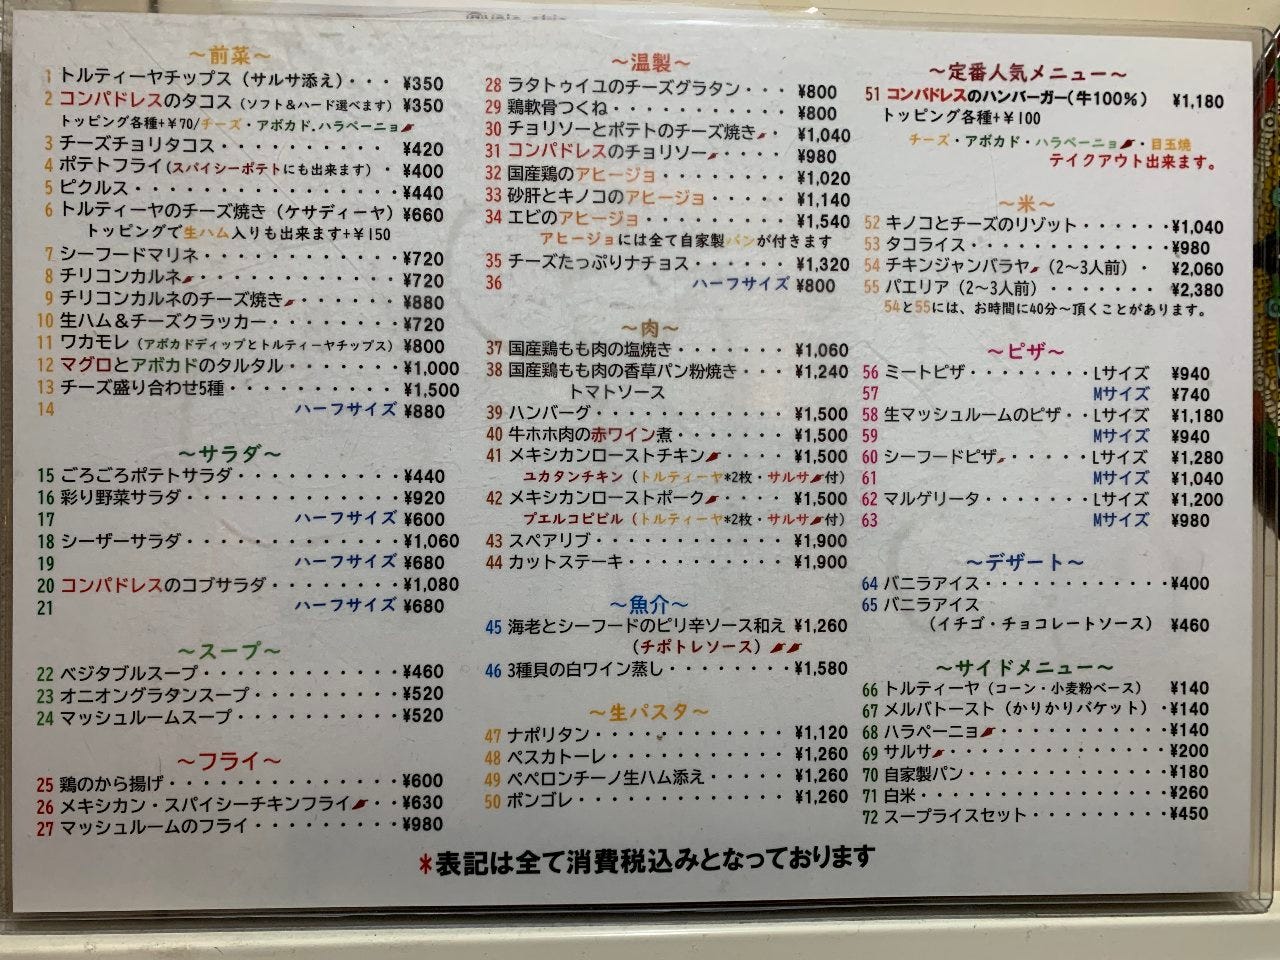 ～前菜～
1 トルティーヤチップス（サルサ添え）・・・ ¥350
2 コンパドレスのタコス（ソフト＆ハード選べます）¥350
トッピング各種+¥70/チーズ・アボカド.ハラペーニョ
3 チーズチョリタコス・・・・・・・・・ ¥420
4 ポテトフライ（スパイシーポテトにも出来ます）・ ¥400
5 ピクルス・・・・・・・・・・・・・・・ ¥440
6 トルティーヤのチーズ焼き（ケサディーヤ）¥660
トッピングで生ハム入りも出来ます+¥150
7 シーフードマリネ・・・・・・・・・・・ ¥720
8 チリコンカルネ・・・・・・・・・・・ ¥720
9 チリコンカルネのチーズ焼き・・・・・・ ¥880
10 生ハム＆チーズクラッカー・・・・・・・・ ¥720
11 ワカモレ（アボカドディップとトルティーヤチップス）¥800
12 マグロとアボカドのタルタル・・・・・・・ ¥1,000
13 チーズ盛り合わせ5種・・・・・・・・・・ ¥1,500
14 ハーフサイズ ¥880
～サラダ～
15 ごろごろポテトサラダ・・・・・・・・・・ ¥440
16 彩り野菜サラダ・・・・・・・・・・・・ ¥920
17 ハーフサイズ ¥600
18 シーザーサラダ・・・・・・・・・・・・ ¥1,060
19 ハーフサイズ ¥680
20 コンパドレスのコブサラダ・・・・・・・・ ¥1,080
21 ハーフサイズ ¥680
～スープ～
22 ベジタブルスープ・・・・・・・・・・・ ¥460
23 オニオングラタンスープ・・・・・・・・・ ¥520
24 マッシュルームスープ・・・・・・・・・・ ¥520
～フライ～
25 鶏のから揚げ・・・・・・・・・・・・・ ¥600
26 メキシカン・スパイシーチキンフライ・・ ¥630
27 マッシュルームのフライ・・・・・・・・・ ¥980
～温製～
28 ラタトゥイユのチーズグラタン・・・ ¥800
29 鶏軟骨つくね・・・・・・・・・・・ ¥800
30 チョリソーとポテトのチーズ焼き・・ ¥1,040
31 コンパドレスのチョリソー・・・・・ ¥980
32 国産鶏のアヒージョ・・・・・・・・ ¥1,020
33 砂肝とキノコのアヒージョ・・・・・ ¥1,140
34 エビのアヒージョ・・・・・・・・・ ¥1,540
アヒージョには全て自家製パンが付きます
35 チーズたっぷりナチョス・・・・・・ ¥1,320
36 ハーフサイズ ¥800
～肉～
37 国産鶏もも肉の塩焼き・・・・・・・ ¥1,060
38 国産鶏もも肉の香草パン粉焼き・・・ ¥1,240
トマトソース
39 ハンバーグ・・・・・・・・・・・・ ¥1,500
40 牛ホホ肉の赤ワイン煮・・・・・・・ ¥1,500
41 メキシカンローストチキン・・・・ ¥1,500
ユカタンチキン（トルティーヤ*2枚・サルサ付）
42 メキシカンローストポーク・・・・ ¥1,500
プエルコピビル（トルティーヤ*2枚・サルサ付）
43 スペアリブ・・・・・・・・・・・・ ¥1,900
44 カットステーキ・・・・・・・・・・ ¥1,900
～魚介～
45 海老とシーフードのピリ辛ソース和え ¥1,260
（チポトレソース）
46 3種貝の白ワイン蒸し・・・・・・・・ ¥1,580
～生パスタ～
47 ナポリタン・・・・・・・・・・・・ ¥1,120
48 ペスカトーレ・・・・・・・・・・・ ¥1,260
49 ペペロンチーノ生ハム添え・・・・・ ¥1,260
50 ボンゴレ・・・・・・・・・・・・・ ¥1,260
～定番人気メニュー～
51 コンパドレスのハンバーガー（牛100%） ¥1,180
トッピング各種+¥100
チーズ・アボカド・ハラペーニョ・目玉焼
テイクアウト出来ます。
～米～
52 キノコとチーズのリゾット・・・・・・ ¥1,040
53 タコライス・・・・・・・・・・・・・ ¥980
54 チキンジャンバラヤ（2～3人前）・ ¥2,060
55 パエリア（2～3人前）・・・・・・・ ¥2,380
54と55には、お時間に40分～頂くことがあります。
～ピザ～
56 ミートピザ・・・・・・・・Lサイズ ¥940
57 Mサイズ ¥740
58 生マッシュルームのピザ・・Lサイズ ¥1,180
59 Mサイズ ¥940
60 シーフードピザ・・・・・Lサイズ ¥1,280
61 Mサイズ ¥1,040
62 マルゲリータ・・・・・・・Lサイズ ¥1,200
63 Mサイズ ¥980
～デザート～
64 バニラアイス・・・・・・・・・・・・ ¥400
65 バニラアイス
（イチゴ・チョコレートソース） ¥460
～サイドメニュー～
66 トルティーヤ（コーン・小麦粉ベース） ¥140
67 メルバトースト（かりかりバケット）・ ¥140
68 ハラペーニョ・・・・・・・・・・・ ¥140
69 サルサ・・・・・・・・・・・・・・ ¥200
70 自家製パン・・・・・・・・・・・・・ ¥180
71 白米・・・・・・・・・・・・・・・・ ¥260
72 スープライスセット・・・・・・・・・ ¥450
*表記は全て消費税込みとなっております